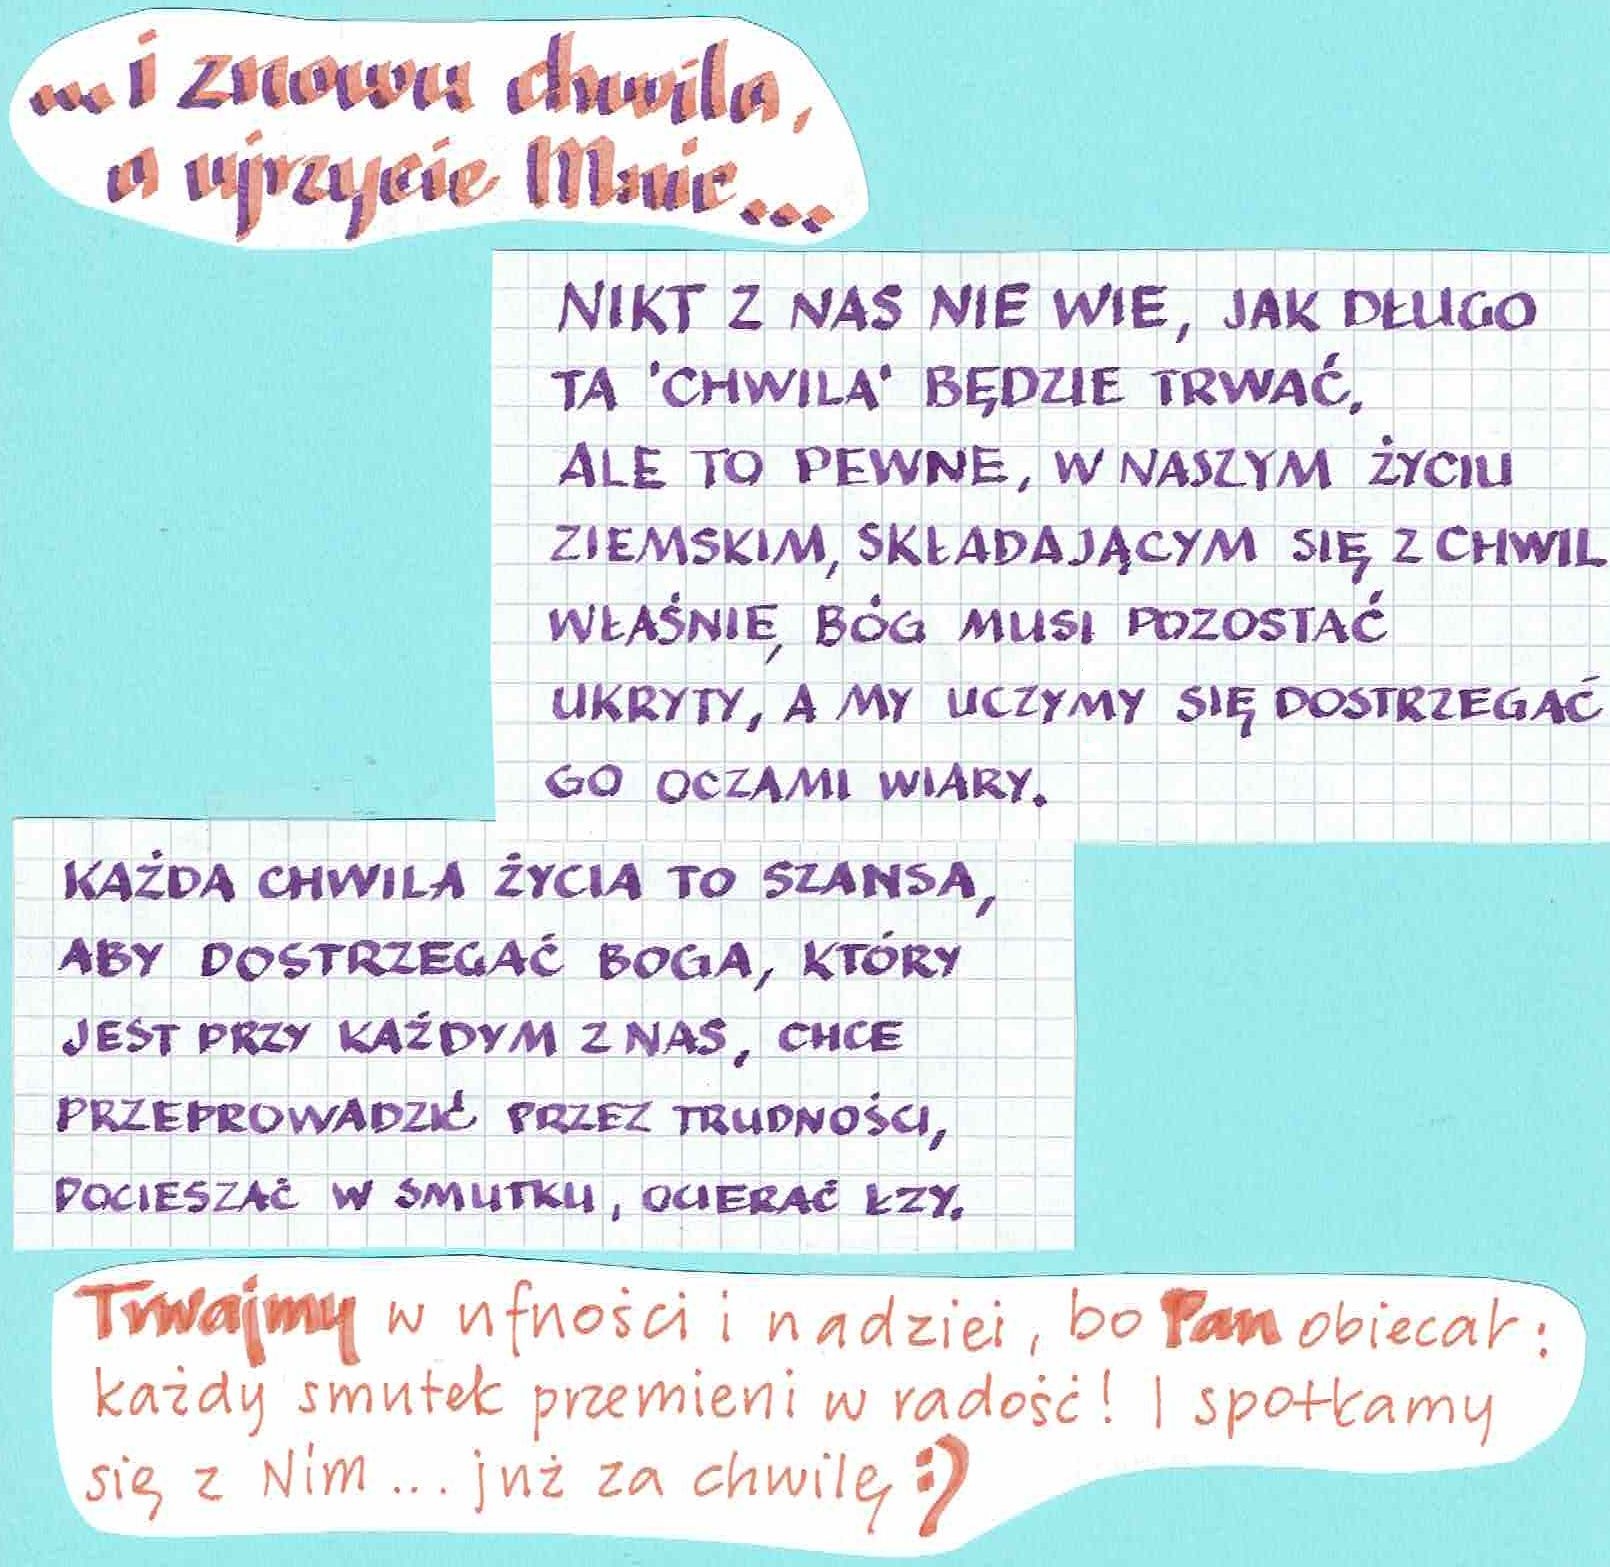 ...i znowu chwila,
a ujrzycie Mnie...
NIKT Z NAS NIE WIE, JAK DŁUGO
TA 'CHWILA' BĘDZIE TRWAĆ,
ALE TO PEWNE, W NASZYM ŻYCIU
ZIEMSKIM, SKŁADAJĄCYM SIĘ Z CHWIL
WŁAŚNIE, BÓG MUSI POZOSTAĆ
UKRYTY, A MY UCZYMY SIĘ DOSTRZEGAĆ
GO OCZAMI WIARY.
KAŻDA CHWILA ŻYCIA TO SZANSA,
ABY DOSTRZEGAĆ BOGA, KTÓRY
JEST PRZY KAŻDYM Z NAS, CHCE
PRZEPROWADZIĆ PRZEZ TRUDNOŚCI,
POCIESZAĆ W SMUTKU, OCIERAĆ ŁZY.
Trwajmy w ufności i nadziei, bo Pan obiecał:
każdy smutek przemieni w radość! I spotkamy
się z Nim... już za chwilę :)